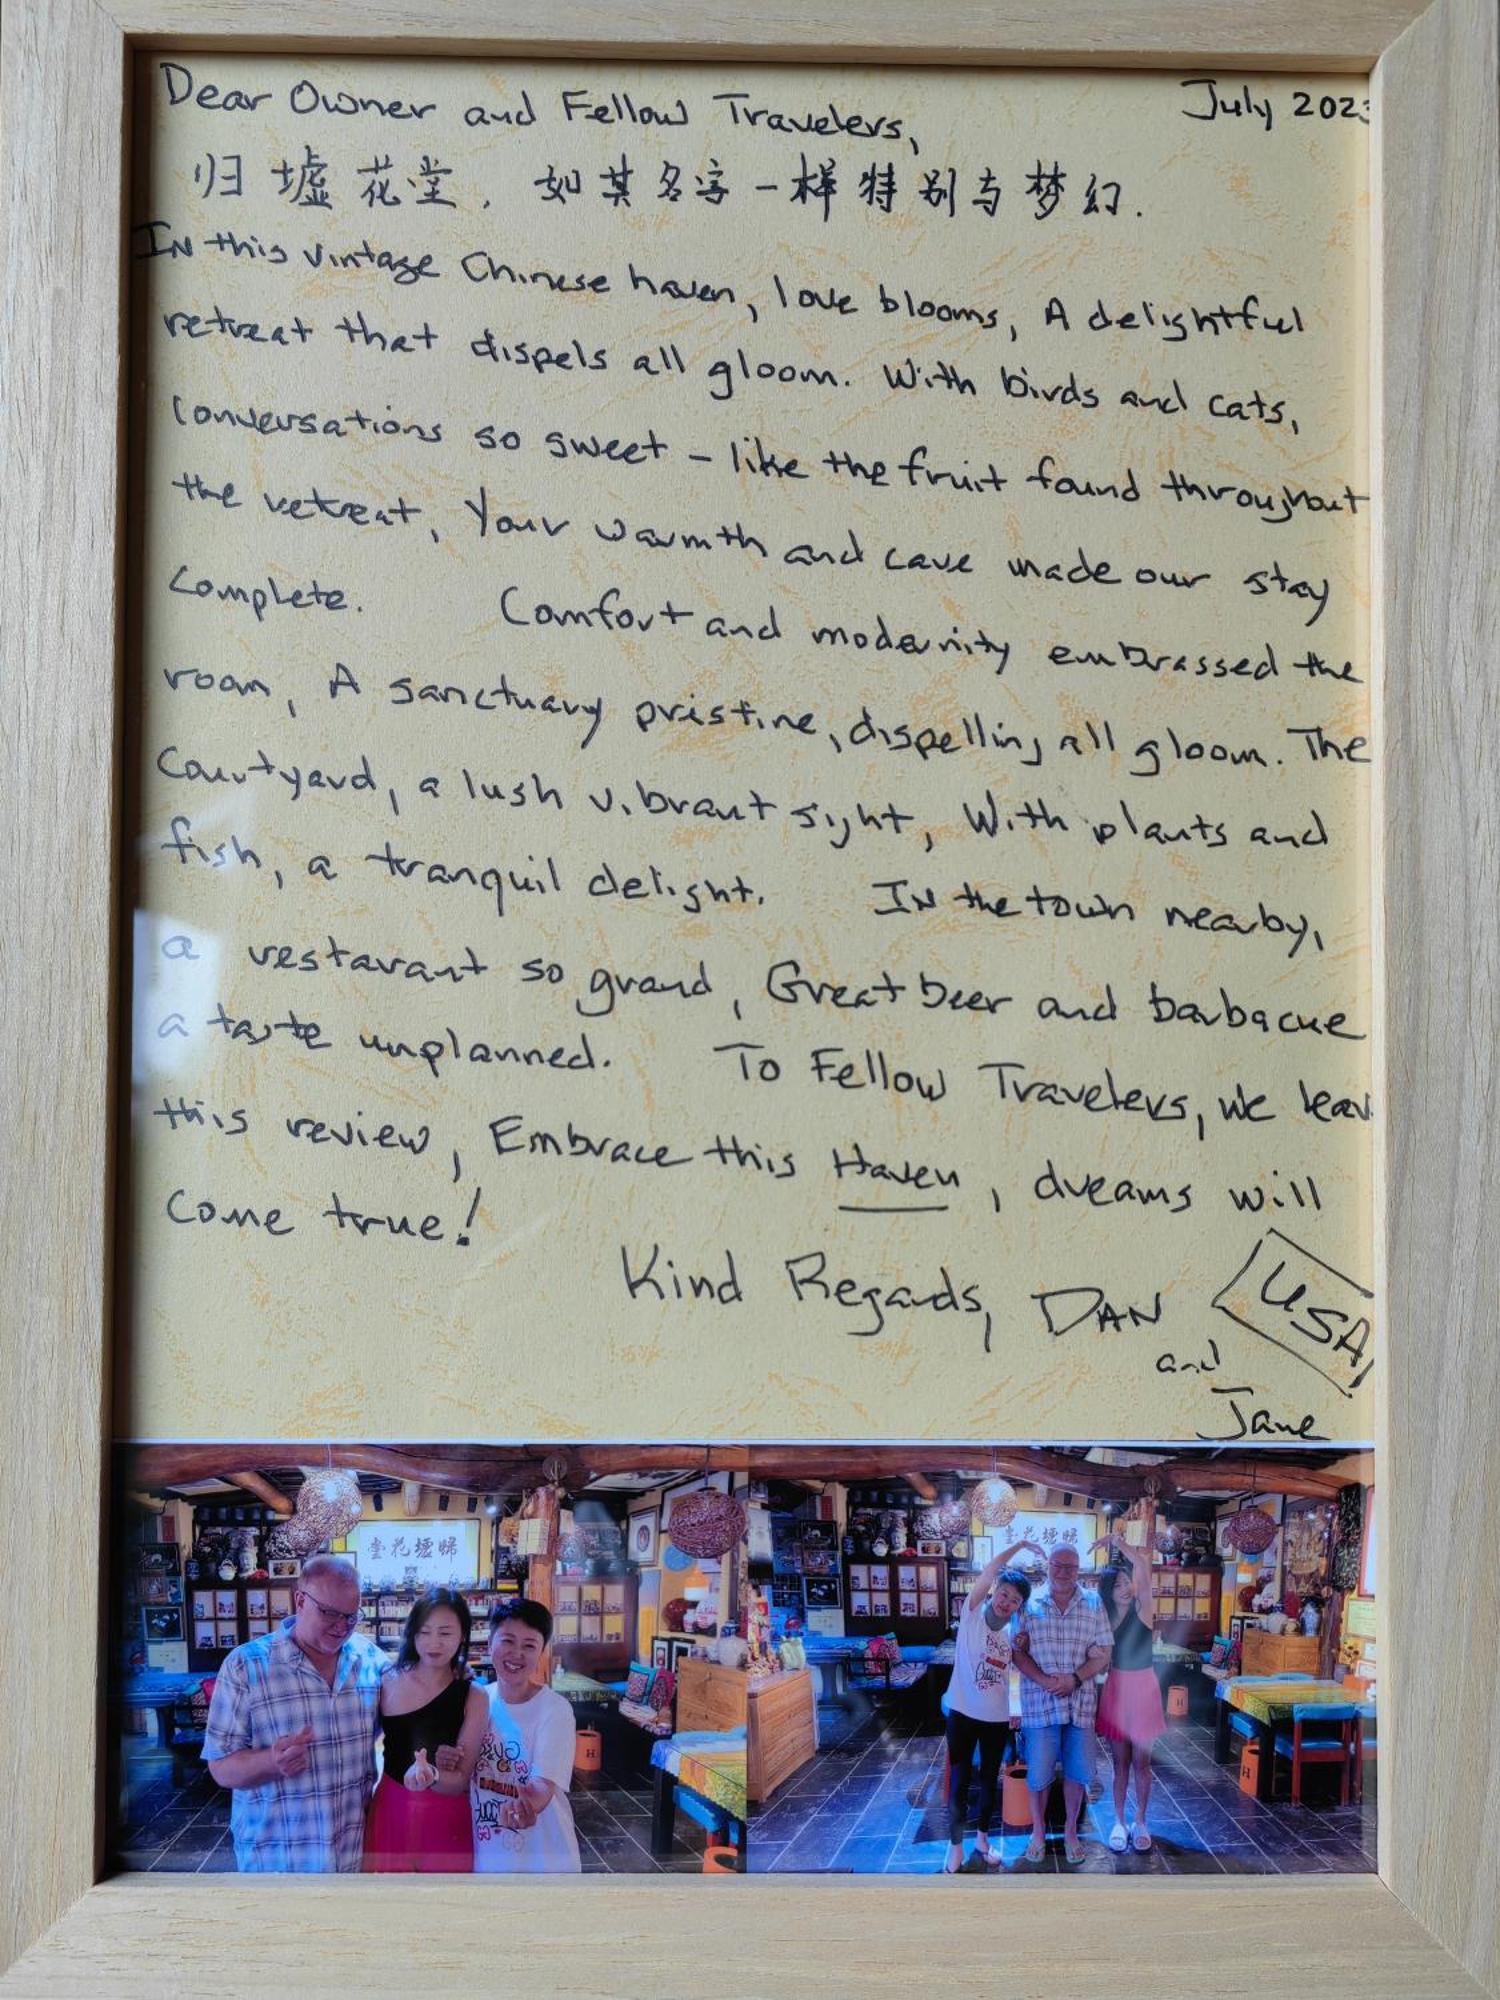 Dear Owner and Fellow Travelers,
July 2023
归墟花堂，如其名字一样特别与梦幻.
IN this vintage Chinese haven, love blooms, A delightful
retreat that dispels all gloom. With birds and cats,
conversations so sweet - like the fruit found throughout
the retreat, Your warmth and care made our stay
complete. Comfort and modernity embrassed the
room, A sanctuary pristine, dispelling all gloom. The
courtyard, a lush vibrant sight, With plants and
fish, a tranquil delight. IN the town nearby,
a restarant so grand, Great beer and barbacue
a taste unplanned. To Fellow Travelers, we leav
this review, Embrace this Haven, dreams will
come true!
Kind Regards, DAN
USA
and
Jane
堂花墟歸
堂花墟歸
H
H
H